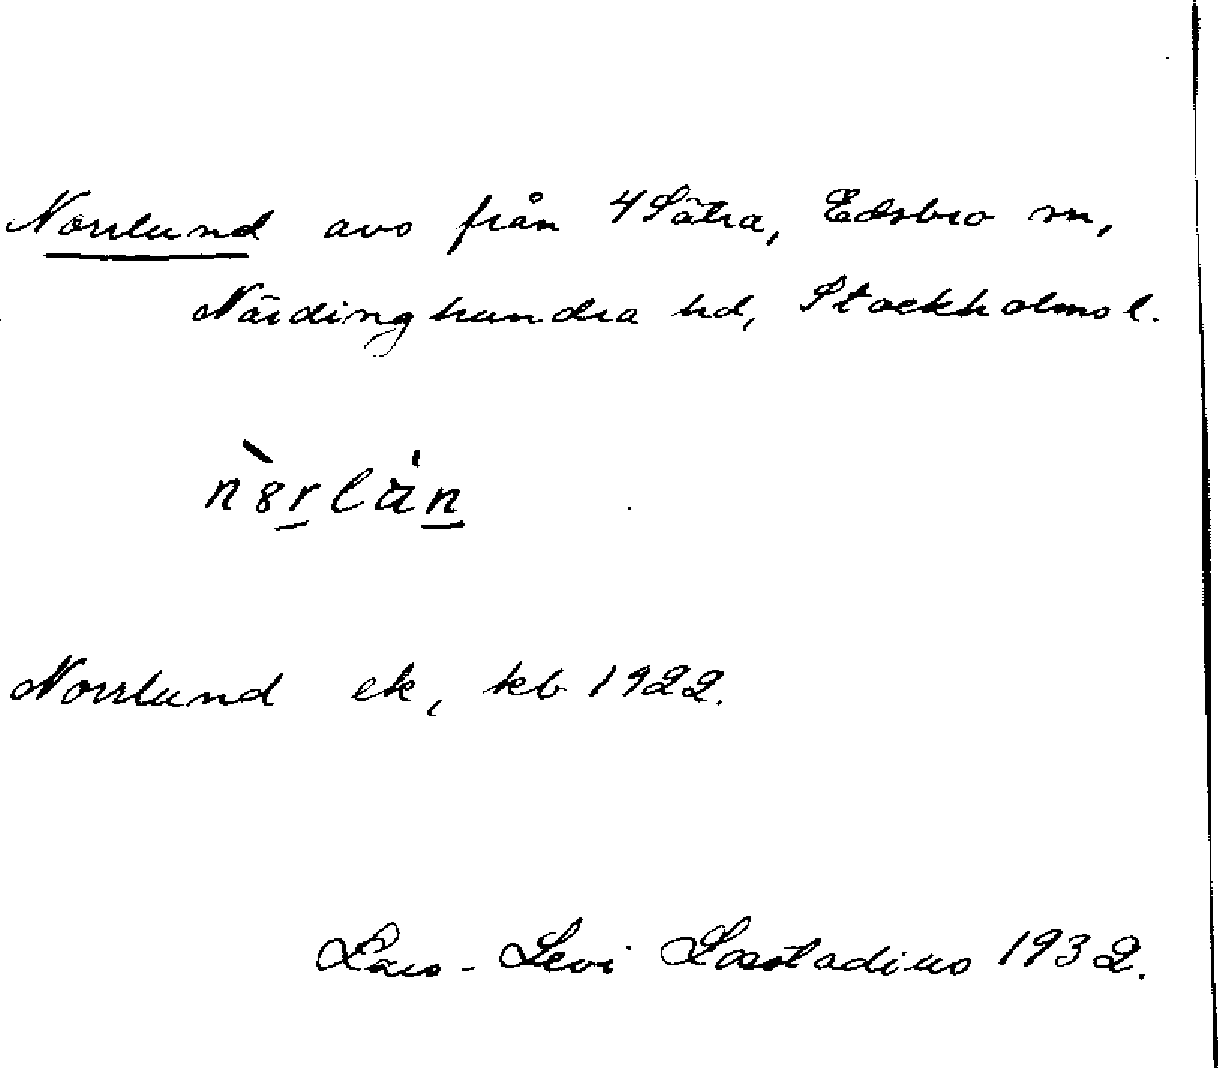 Norrlund avs från 4 Sätra, Edsbro sn,
Närdinghundra hd, Stockholms l.
Norrlund ek, kb 1922.
Lars-Levi Laestadius 1932.